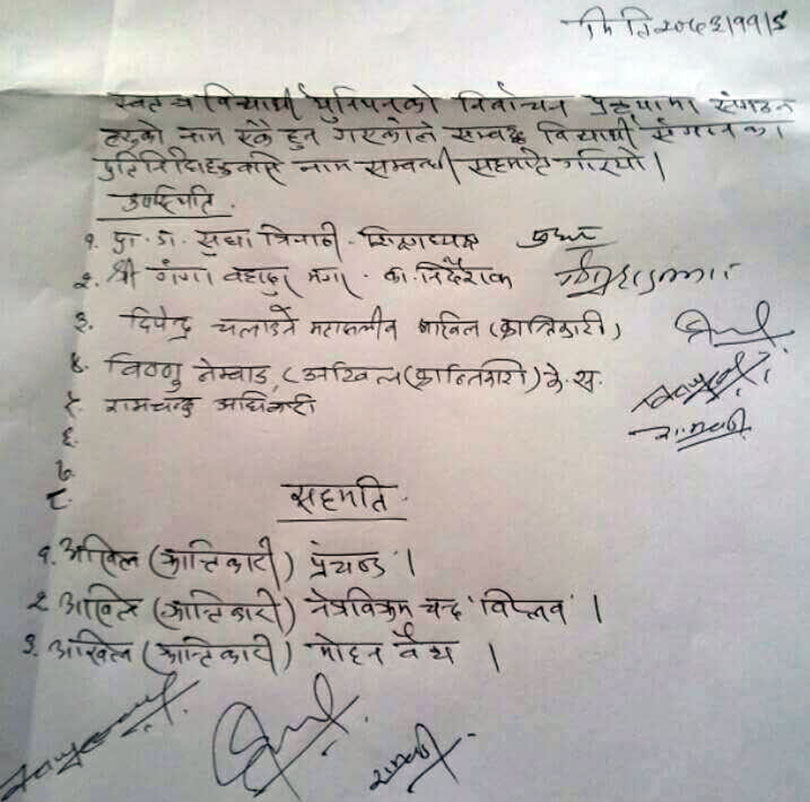 मिति २०७३/११/९
स्वतन्त्र विद्यार्थी युनियनको निर्वाचन प्रक्रृयामा संगठन
हरुको नाम एकै हुन गएकोले सम्बद्ध विद्यार्थी संगठनका
प्रतिनिधिहरु नाम सम्बन्धी सहमति गरियो।
उपस्थिति .
१. प्रा. डा. सुधा त्रिपाठी - शिक्षाध्यक्ष
२. श्री गंगा बहादुर का. निर्देशक
३. दिपेन्द्र चलाउने अखिल (क्रान्तिकारी)
४. विष्णु नेम्वाङ, (अखिल (क्रान्तिकारी) के. स.
५. रामचन्द्र अधिकारी
६.
७.
८.
सहमति .
१. अखिल (क्रान्तिकारी) प्रचण्ड ।
२. अखिल (क्रान्तिकारी) नेत्रविक्रम चन्द 'विप्लव' ।
३. अखिल (क्रान्तिकारी) मोहन वैद्य ।